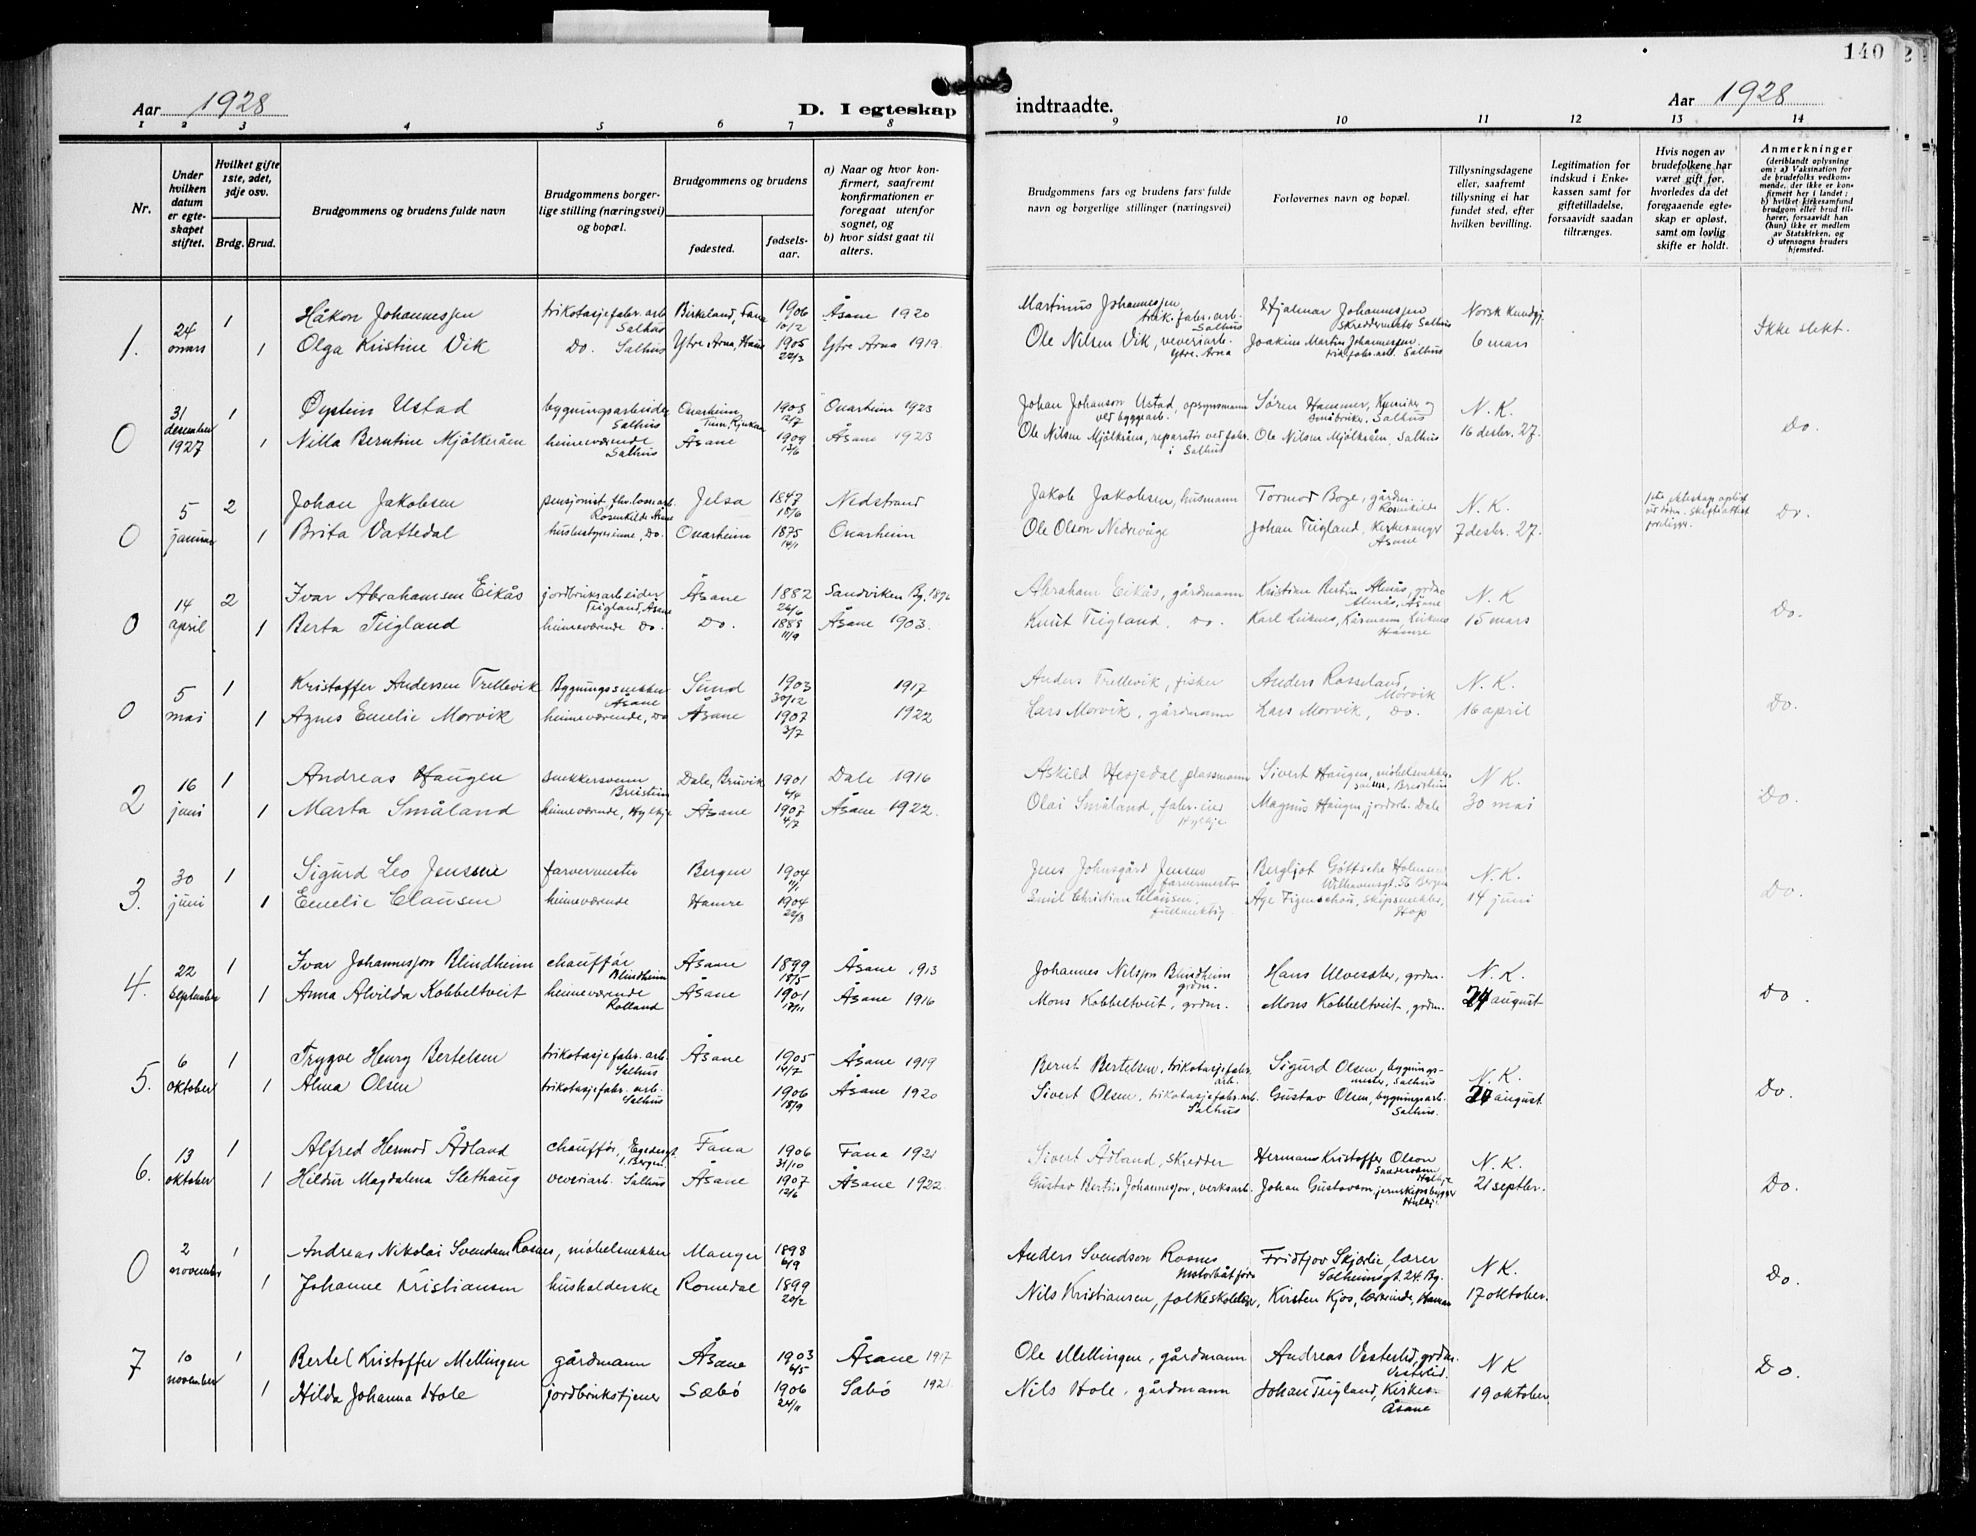 140
Aar 1928 D. I egteskap indtraadte. Aar 1928
1 2 3 4 5 6 7 8 9 10 11 12 13 14
Nr.
Under hvilken datum er egteskapet stiftet.
Hvilket gifte 1ste, 2det, 3dje osv.
Brdg. Brud.
Brudgommens og brudens fulde navn
Brudgommens borgerlige stilling (næringsvei) og bopæl.
Brudgommens og brudens
fødested. fødselsaar.
a) Naar og hvor konfirmert, saafremt konfirmationen er foregaat utenfor sognet, og
b) hvor sidst gaat til alters.
Brudgommens fars og brudens fars fulde navn og borgerlige stillinger (næringsvei)
Forlovernes navn og bopæl.
Tillysningsdagene eller, saafremt tillysning ei har fundet sted, efter hvilken bevilling.
Legitimation for indskud i Enkekassen samt for giftetilladelse, forsaavidt saadan tiltrænges.
Hvis nogen av brudefolkene har været gift før, hvorledes da det foregaaende egteskap er opløst, samt om lovlig skifte er holdt.
Anmerkninger
(deriblandt oplysning om: a) Vaksination for de brudefolks vedkommende, der ikke er konfirmert her i landet; b) hvilket kirkesamfund brudgom eller brud tilhører, forsaavidt han (hun) ikke er medlem av Statskirken, og c) utensogns bruders hjemsted.
1. 24 mars 1 Håkon Johannessen trikotasjefabr. arb. Salhus Birkeland, Fana 1906 10/2 Åsane 1920 Martinus Johannessen trik. fabr. arb. Salhus Hjalmar Johannessen skreddermester Salhus Norsk Kundgj. Ikke slekt.
1 Olga Kristine Vik Do. Salhus Ytre Arna, Haus 1905 22/3 Ytre Arna 1919. Ole Nilsen Vik, veveriarb. Ytre Arna Joakim Martin Johannessen trik. fabr. arb. Salhus 6 mars
0 31 desember 1927 1 Øystein Ustad bygningsarbeider Salhus Onarheim 1903 12/7 Onarheim 1923 Johan Johanson Ustad, opsynsmann ved byggearb. Søren Hammer, Salhus N. K. Do.
1 Nilla Berntine Mjølkeråen heimeværende Salhus Åsane 1909 13/6 Åsane 1923 Ole Nilsen Mjølkråen, reparatør ved fabr. i Salhus Ole Nilsen Mjølkråen, Salhus 16 desbr. 27.
0 5 januar 2 Johan Jakobsen pensjonist, Jelsa 1847 18/6 Nedstrand Jakob Jakobsen, husmann Tormod Boge, gårdm. Rosenkilde N. K. Do.
1 Brita Vattedal husbestyrerinne, Do. Onarheim 1875 14/1 Onarheim Ole Olson Nedrevåge Johan Teigland, Kirkesanger Åsane 7 desbr. 27.
0 14 april 2 Ivar Abrahamsen Eikås jordbruksarbeider Teigland, Åsane Åsane 1882 26/6 Sandviken Bg. 1896 Abraham Eikås, gårdmann Kristian Bertin Almås, grdm. Almås, Åsane N. K Do.
1 Berta Teigland heimeværende Do. Do. 1888 11/9 Åsane 1903. Knut Teigland, Do. Karl Leiknes, Leiknes Hamre 15 mars
0 5 mai 1 Kristoffer Andersen Trellevik Bygningssnekker Åsane Sund 1903 30/12 1917 Anders Trellevik, fisker Anders Rosseland, Morvik N. K. Do.
1 Agnes Emelie Morvik heimeværende, Do Åsane 1907 3/7 1922 Lars Morvik, gårdmann Lars Morvik, Do. 16 april
2 16 juni 1 Andreas Haugen snekkersvenn Breistein Dale, Bruvik 1901 6/4 Dale 1916 Askild Hesjedal, plassmann Sivert Haugen, møbelsnekker Breistein N K. Do.
1 Marta Småland heimeværende, Hylkje Åsane 1907 4/7 Åsane 1922. Olai Småland, fabr. eier Hylkje Magnus Haugen, jordarb. Dale 30 mai
3. 30 juni 1 Sigurd Leo Jenssen farvermester Bergen 1904 4/1 Jens Johnsgård Jensen farvermester Bergljot Gøttsche Holmsen Welhavensgt. 56 Bergen N. K. Do.
1 Emelie Clausen heimeværende Hamre 1904 22/8 Emil Christian Clausen, fudmektig. Åge Figenschou, skipsmekler, Hop 14 juni
4. 22 september 1 Ivar Johannesson Blindheim chauffør Blindheim Åsane 1899 18/5 Åsane 1913 Johannes Nilsson Blindheim grdm. Hans Ulvesæter, grdm. N. K. Do.
1 Anna Alvilda Kobbeltveit heimeværende Rolland Åsane 1901 17/11 Åsane 1916 Mons Kobbeltveit, grdm. Mons Kobbeltveit, grdm. 24 august
5. 6 oktober 1 Trygve Henry Bertelsen trikotasjefabr. arb. Salhus Åsane 1905 16/7 Åsane 1919 Bernt Bertelsen, trikotasjefabr. arb. Sigurd Olsen, bygningsmester, Salhus N. K. Do.
1 Alma Olsen trikotasjefabr. arb. Salhus 1906 18/9 Åsane 1920 Sivert Olsen, trikotasjefabr. arb. Salhus Gustav Olsen, bygningsarb. Salhus. august
6. 13 oktober 1 Alfred Hermod Ådland chauffør, Bergen Fana 1906 31/10 Fana 1921 Sivert Ådland, skredder Hermann Kristoffer Olson Hylkje N. K. Do.
1 Hildur Magdalena Slethaug veveriarb. Salhus Åsane 1907 12/6 Åsane 1922 Gustav Bertin Johannesson, verksarb. Johan Gustavsen, jernskipsbygger Hylkje 21 septbr.
0 2 november 1 Andreas Nikolai Svendsen Rosnes, møbelsnekker Manger 1898 6/9 Anders Svendson Rosnes Motorbåtfører Fridtjov Skjerlie, lærer Solheimsgt. 24. Bg. N K. Do.
1 Johanne Kristiansen husholderske Romedal 1899 20/2 Nils Kristiansen, folkeskolelær. Kirsten Kjos, lærerinde, Hamar 17 oktober.
7 10 november 1 Bertel Kristoffer Mellingen gårdmann Åsane 1903 6/5 Åsane 1917 Ole Mellingen, gårdmann Andreas Vestrlid, grdm. Vestrlid. N K Do.
1 Hilda Johanna Hole jordbrukstjener Sæbø 1906 24/11 Sæbø 1921. Nils Hole, gårdmann Johan Teigland, Kirkes. Åsane 19 oktober.